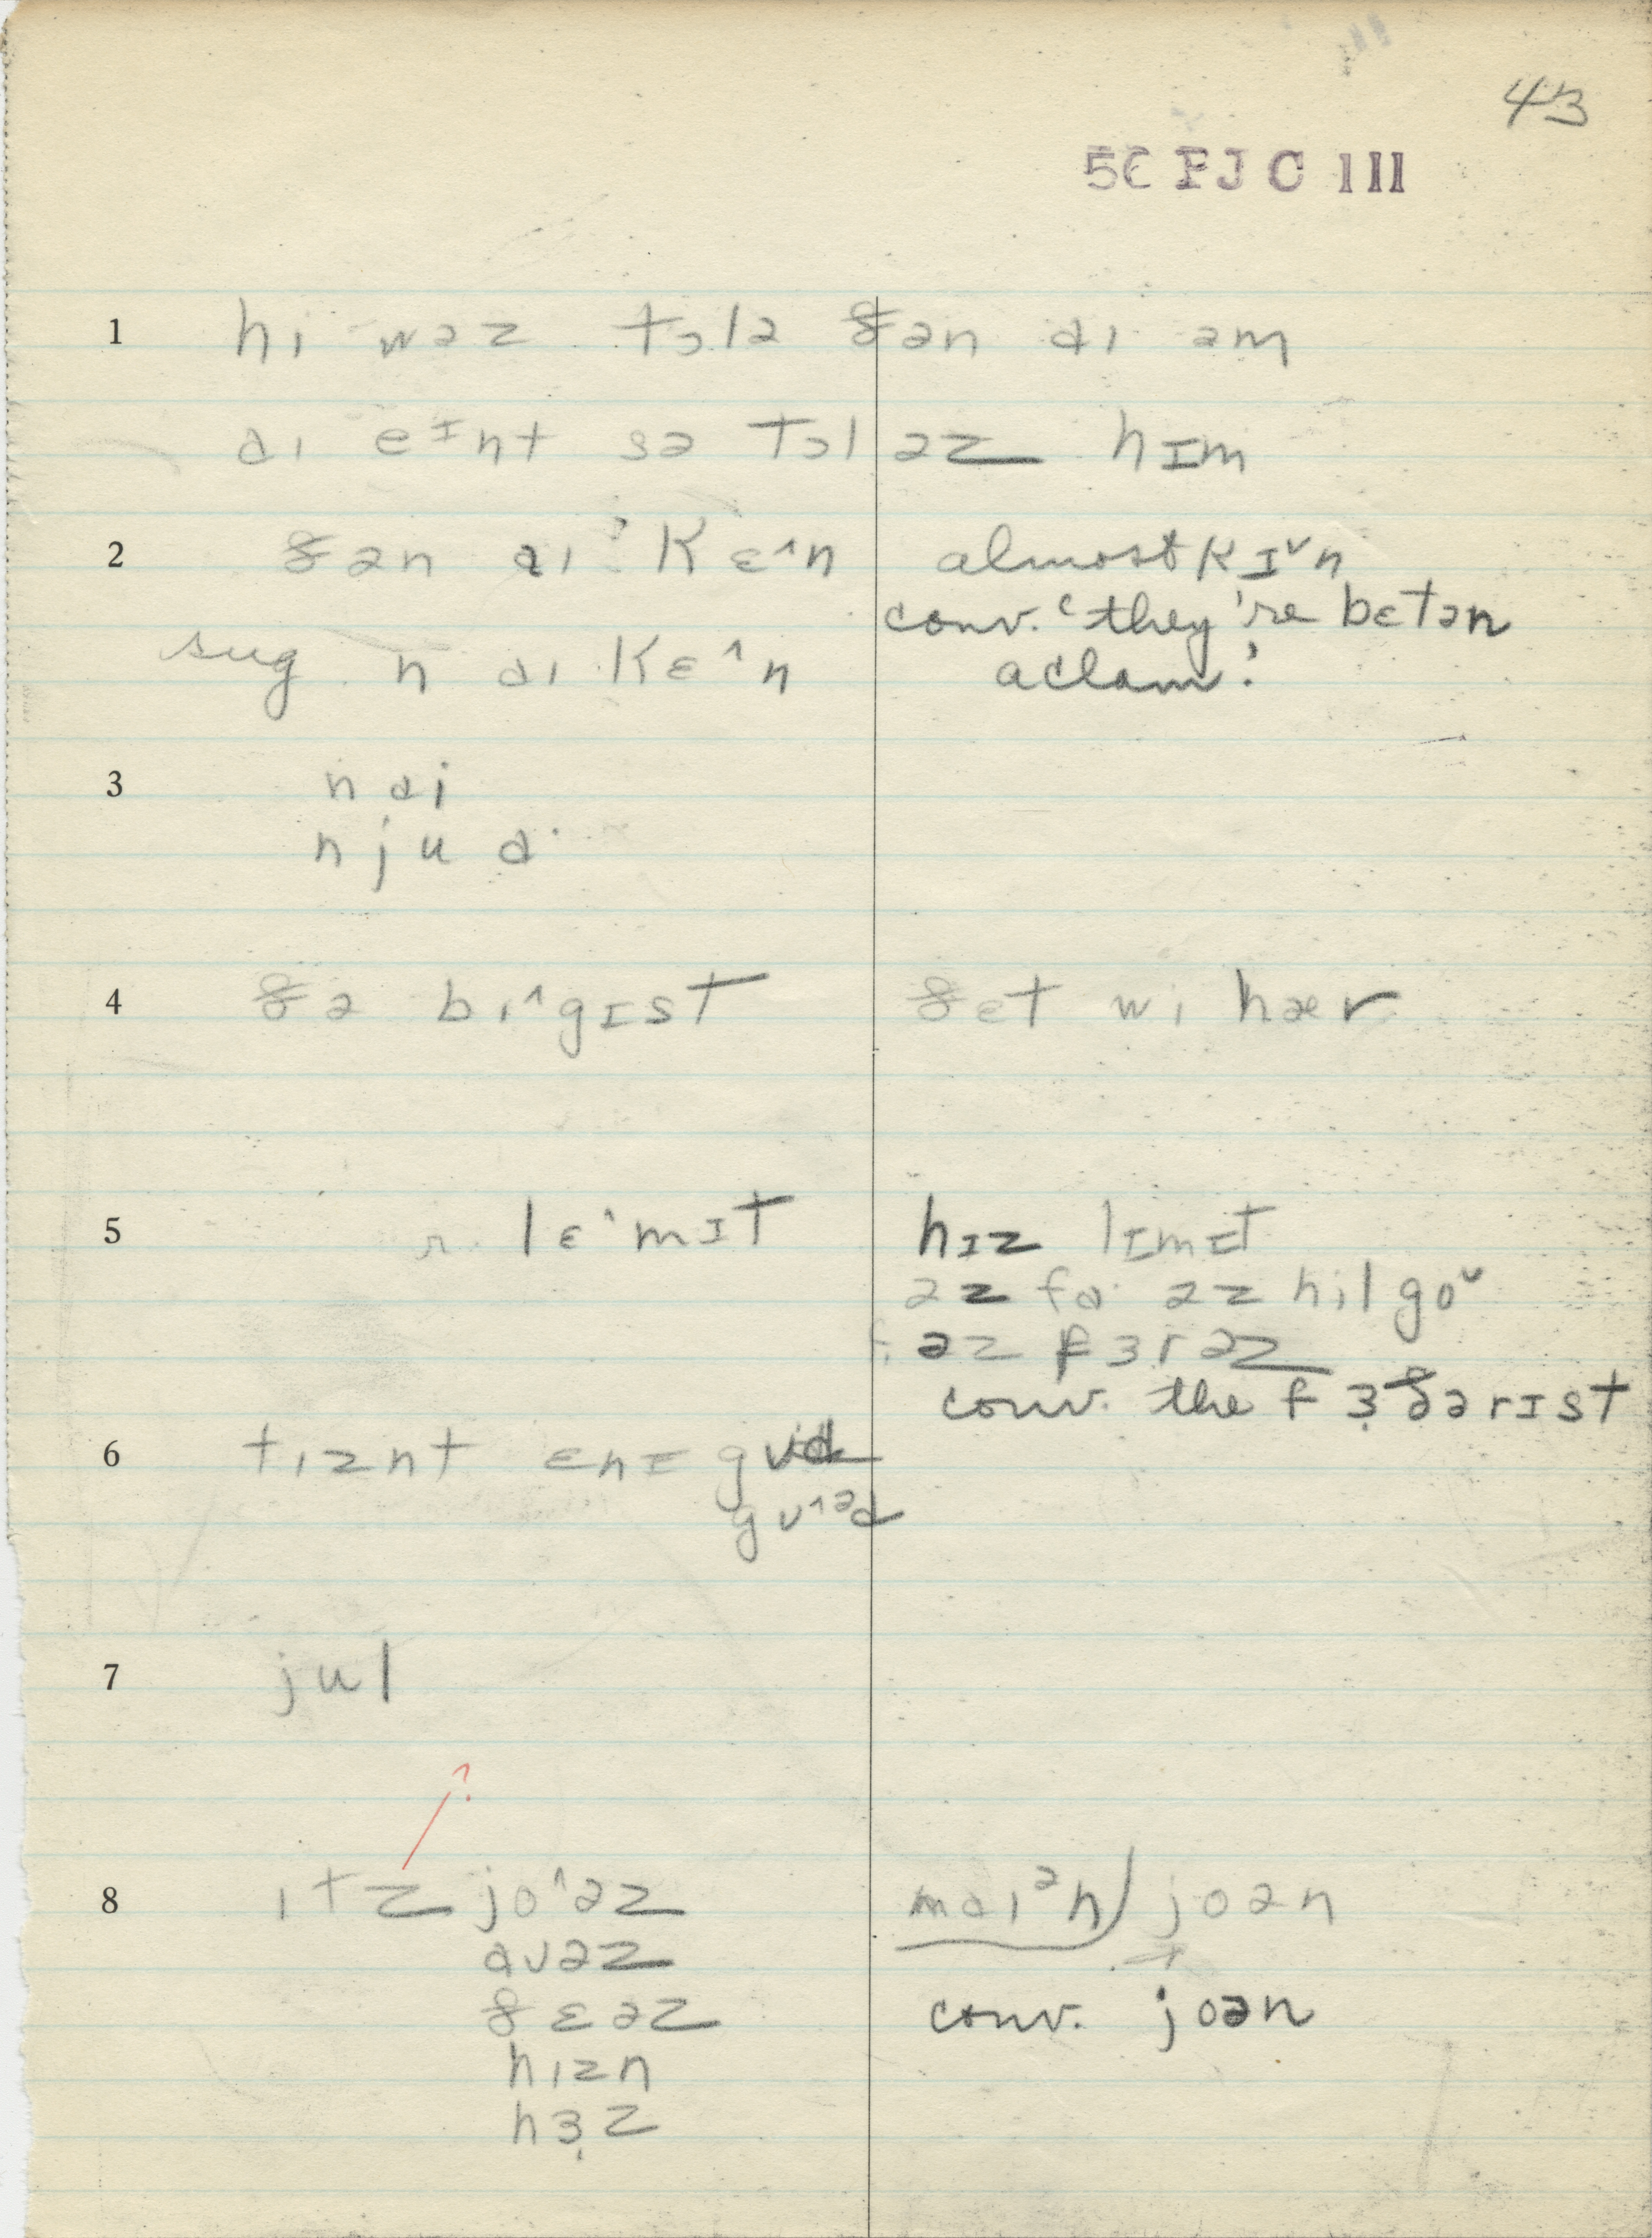 43
5C FJC III
1 hi wəz tɔlə ðən ɑi əm
ɑi eᴵnt sə tɔl əz hɪm
2 ðən ɑi kɛ^n almost kɪˇn
conv. "they're bɛtən
sug n ɑi kɛ^n adam."
3 n ɑi
n ju ɑ·
4 ðə bi^gɪst ðɛt wi hær
5 lɛ^mɪt hɪz lɪmɪt
əz fɑ· əz hil goᵛ
əz fɜrəz
conv. the f ɜ˞ðərɪst
6 tiznt ɛnɪ gud
gʊ^ᵊd
7 jul
?
8 itz jo^əz mɑiᵊn joən
ɑʊəz
ðɛəz conv. joən
hizn
hɜ˞z